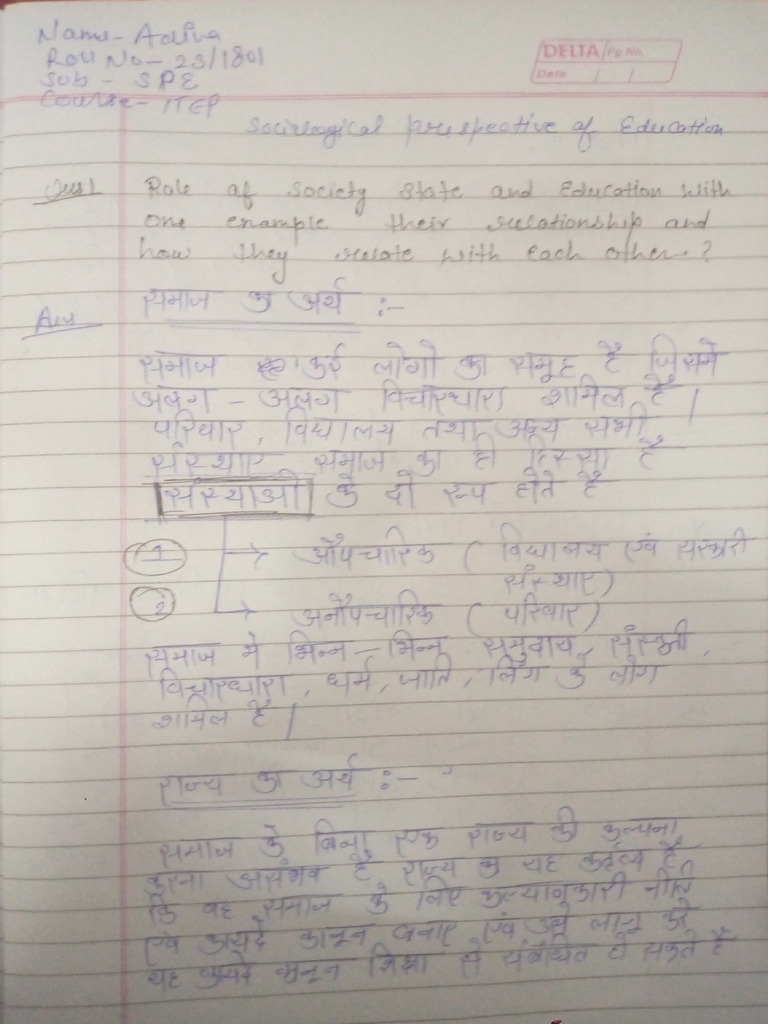 Name - Adiva
Roll No - 23/1801
Sub - SPE
Course - ITEP
DELTA Pg No.
Date
Sociological prespective of Education
Ques1 Role of Society State and Education with
one example their relationship and
how they relate with each other ?
Ans समाज का अर्थ :-
समाज कई लोगो का समूह है जिसमे
अलग - अलग विचारधारा शामिल है |
परिवार, विद्यालय तथा अन्य सभी
संस्थाए समाज का ही हिस्सा है
संस्थाओ के दो रूप होते है
1 → औपचारिक ( विद्यालय एवं सरकारी
संस्थाए)
2 → अनौपचारिक ( परिवार )
समाज मे भिन्न - भिन्न समुदाय, संस्कृती,
विचारधारा, धर्म, जाति, लिंग के लोग
शामिल है |
राज्य का अर्थ :-
समाज के बिना एक राज्य की कल्पना
करना असंभव है राज्य का यह कर्तव्य है
कि वह समाज के लिए कल्याणकारी नीति
एवं कायदे कानून बनाए एवं उन्हे लागू करे
यह कायदे कानून शिक्षा से संबंधित हो सकते है